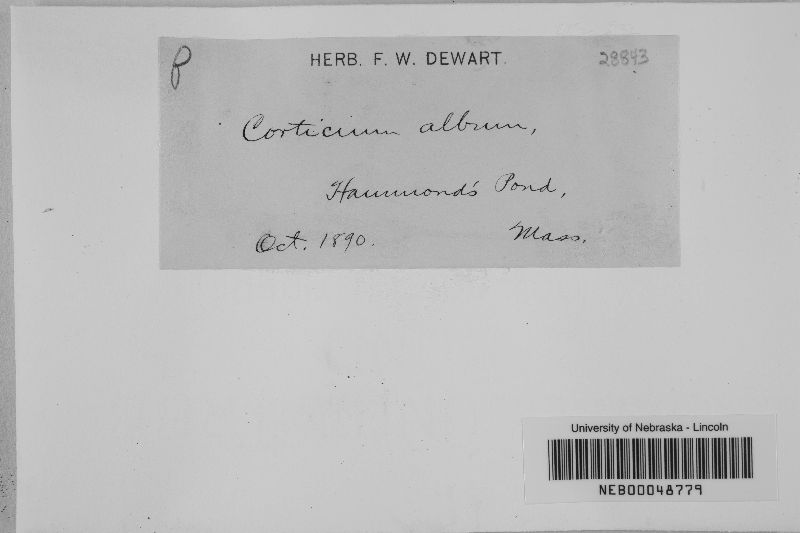 P
HERB. F. W. DEWART.
28843
Corticium album,
Hammond's Pond,
Oct. 1890.
Mass.
University of Nebraska - Lincoln
NEB00048779